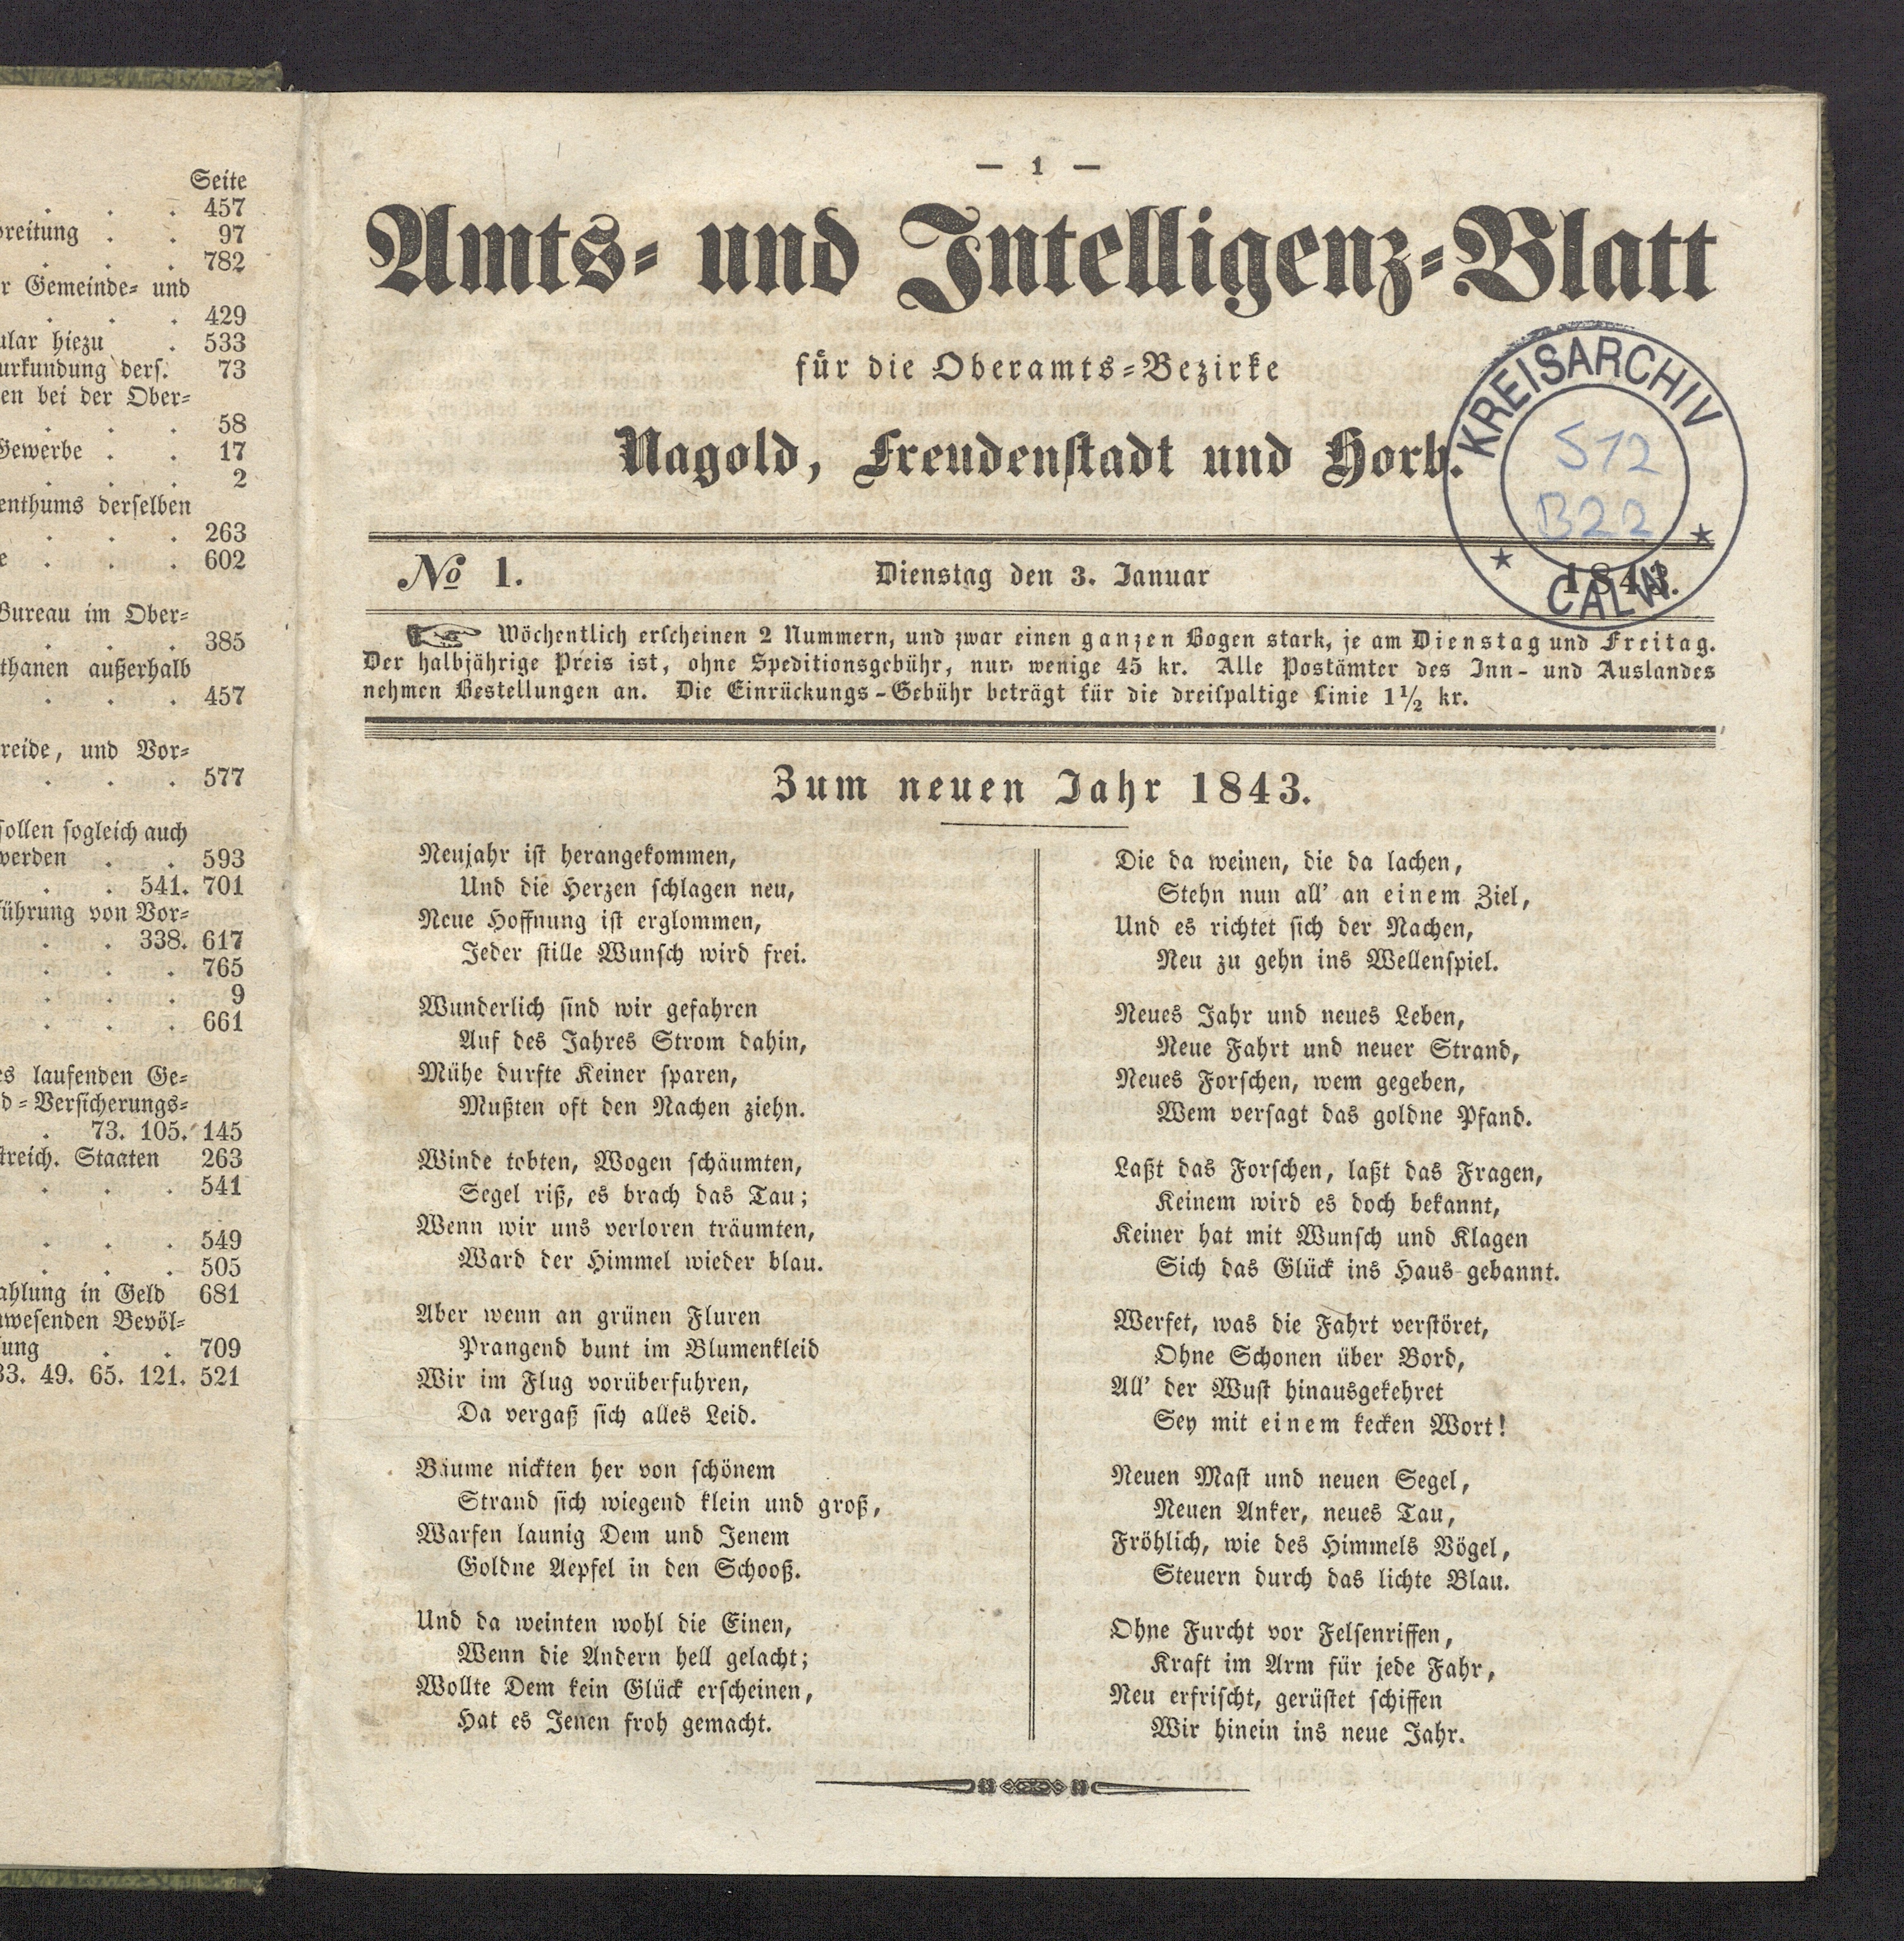 Seite
. . . 457
breitung . . 97
. . . 782
r Gemeinde- und
. . . 429
ular hiezu . 533
urkundung ders. 73
en bei der Ober-
. . . 58
Gewerbe . . 17
. . . 2
enthums derselben
. . . 263
e . . . 602
Bureau im Ober-
. . . 385
thanen außerhalb
. . . 457
reide, und Vor-
. . . 577
sollen sogleich auch
werden . . 593
. . 541. 701
führung von Vor-
. . 338. 617
. . . 765
. . . 9
. . . 661
es laufenden Ge-
d-Versicherungs-
. 73. 105. 145
streich. Staaten 263
. . . 541
. . . 549
. . . 505
ahlung in Geld 681
wesenden Bevöl-
ung . . 709
33. 49. 65. 121. 521
— 1 —
Amts- und Intelligenz-Blatt
für die Oberamts-Bezirke
Nagold, Freudenstadt und Horb.
KREISARCHIV
S12
B22
CALW
№ 1. Dienstag den 3. Januar 1843.
☞ Wöchentlich erscheinen 2 Nummern, und zwar einen ganzen Bogen stark, je am Dienstag und Freitag.
Der halbjährige Preis ist, ohne Speditionsgebühr, nur wenige 45 kr. Alle Postämter des Inn- und Auslandes
nehmen Bestellungen an. Die Einrückungs-Gebühr beträgt für die dreispaltige Linie 1½ kr.
Zum neuen Jahr 1843.
Neujahr ist herangekommen,
Und die Herzen schlagen neu,
Neue Hoffnung ist erglommen,
Jeder stille Wunsch wird frei.
Wunderlich sind wir gefahren
Auf des Jahres Strom dahin,
Mühe durfte Keiner sparen,
Mußten oft den Nachen ziehn.
Winde tobten, Wogen schäumten,
Segel riß, es brach das Tau;
Wenn wir uns verloren träumten,
Ward der Himmel wieder blau.
Aber wenn an grünen Fluren
Prangend bunt im Blumenkleid
Wir im Flug vorüberfuhren,
Da vergaß sich alles Leid.
Bäume nickten her von schönem
Strand sich wiegend klein und groß,
Warfen launig Dem und Jenem
Goldne Aepfel in den Schooß.
Und da weinten wohl die Einen,
Wenn die Andern hell gelacht;
Wollte Dem kein Glück erscheinen,
Hat es Jenen froh gemacht.
Die da weinen, die da lachen,
Stehn nun all' an einem Ziel,
Und es richtet sich der Nachen,
Neu zu gehn ins Wellenspiel.
Neues Jahr und neues Leben,
Neue Fahrt und neuer Strand,
Neues Forschen, wem gegeben,
Wem versagt das goldne Pfand.
Laßt das Forschen, laßt das Fragen,
Keinem wird es doch bekannt,
Keiner hat mit Wunsch und Klagen
Sich das Glück ins Haus gebannt.
Werfet, was die Fahrt verstöret,
Ohne Schonen über Bord,
All' der Wust hinausgekehret
Sey mit einem kecken Wort!
Neuen Mast und neuen Segel,
Neuen Anker, neues Tau,
Fröhlich, wie des Himmels Vögel,
Steuern durch das lichte Blau.
Ohne Furcht vor Felsenriffen,
Kraft im Arm für jede Fahr,
Neu erfrischt, gerüstet schiffen
Wir hinein ins neue Jahr.